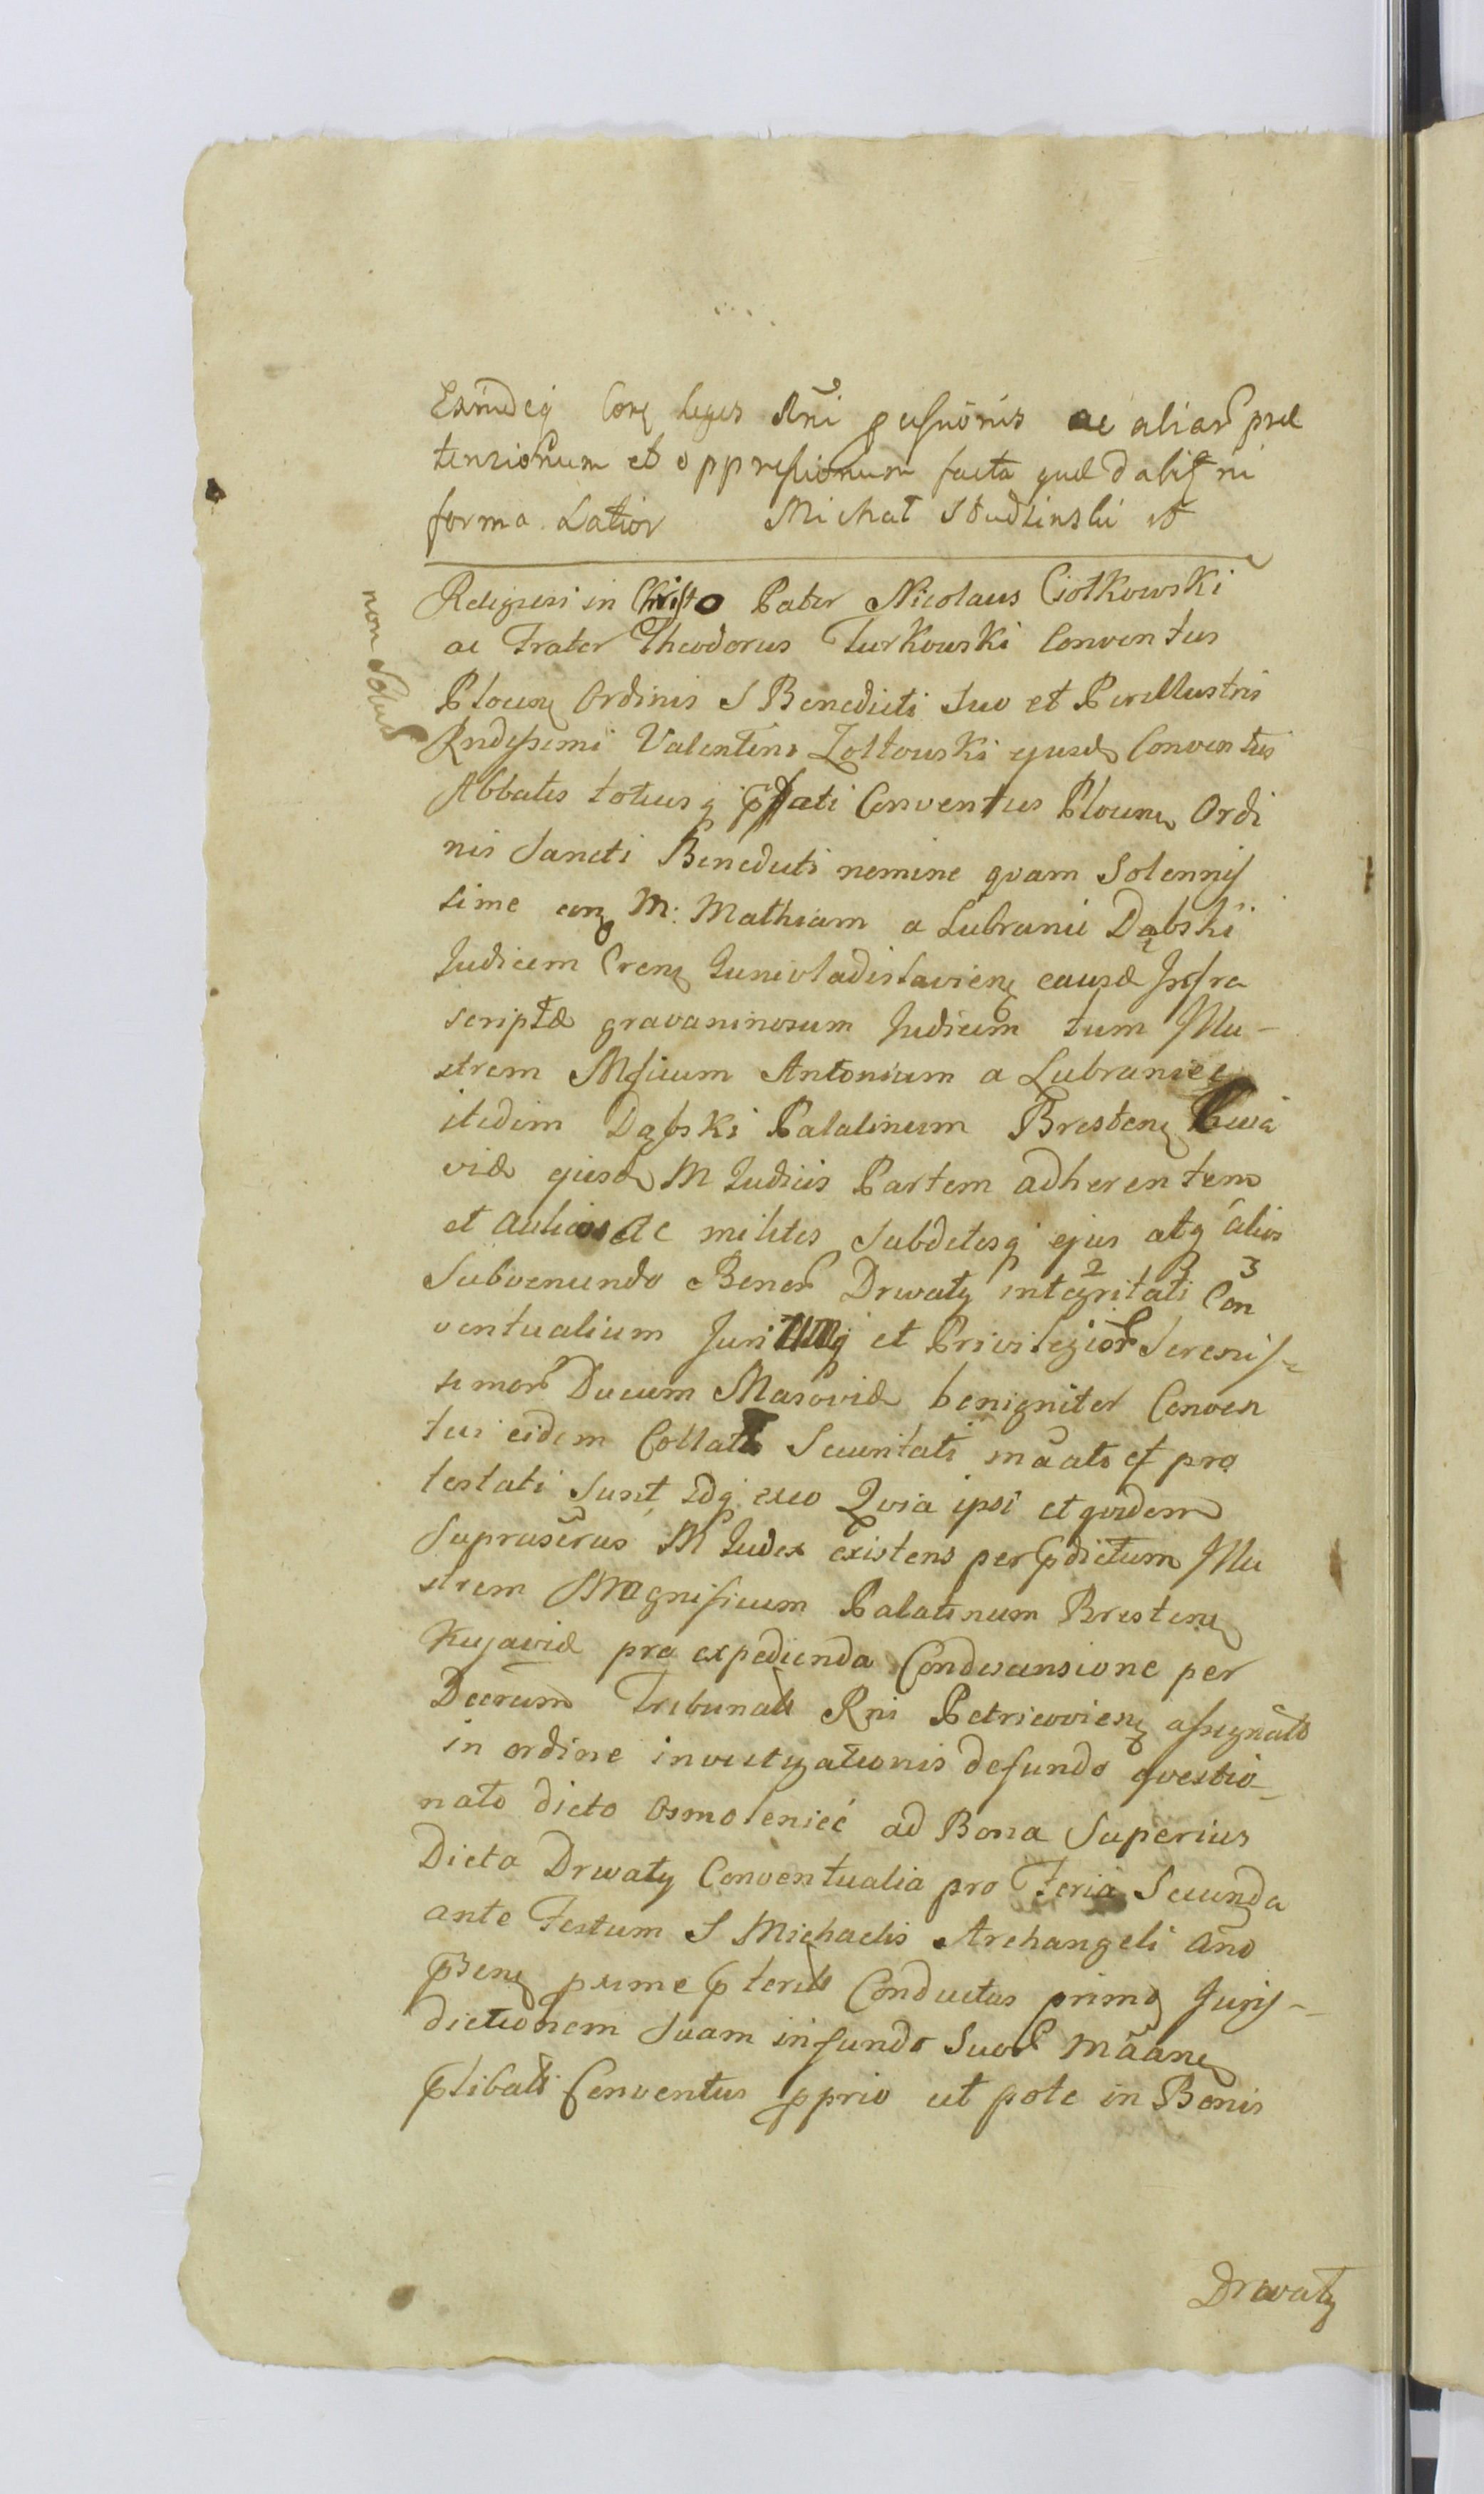 Eamdeq Corq leges Rni pessionis ac aliar præ
tensionum et oppressionum facta quæ dabit ni
forma Latior Michał Studzinski
non Solut
Religiosi in Christo Pater Nicolaus Ciołkowski
ac Frater Theodorus Turkowski Conventus
Plocens Ordinis S Benedicti Suo et Perillustris
Rndissimi Valentini Zołtowski ejusd Conventus
Abbatis totiusq pfati Conventus Plocens Ordi
nis Sancti Benedicti nomine qvam Solennis
sime con M: Mathiam a Lubranie Dąbski
Judicem Crens Junivladislaviens causæ Infra
scriptæ gravaminosum Judicem tum Illu-
strem Mficum Antonium a Lubraniec
itidem Dąbski Palatinum Brestens Cuia
viæ ejusd M Judicis Partem adherentem
et aulicos ac milites Subditosq ejus atq alios
Subvenundo Bonor Drwaty integritati Con
2 3
ventualium Juri et Privilegior Serenis-
simor Ducum Masoviæ benigniter Conven
tui eidem Collat Securitati māati et pro
testati Sunt Idq exeo Qvia ipsi et qvidem
Suprascrus M Judex existens per pdictum Illu
strem Magnificum Palatinum Brestens
Kujaviæ pro expedienda Condescensione per
Decrum Tribunalis Rni Petricoviens assignato
in ordine investigationis defundo qvestio-
nato dicto Osmoleniec ad Bona Superius
Dicta Drwaty Conventualia pro Feria Secunda
ante Festum S Michaelis Archangeli Ano
psens proxime pteriti Conductus primo Juris-
dictionem Suam infundo Suor māane
plibati Conventus pprio ut pote in Bonis
Drwaty